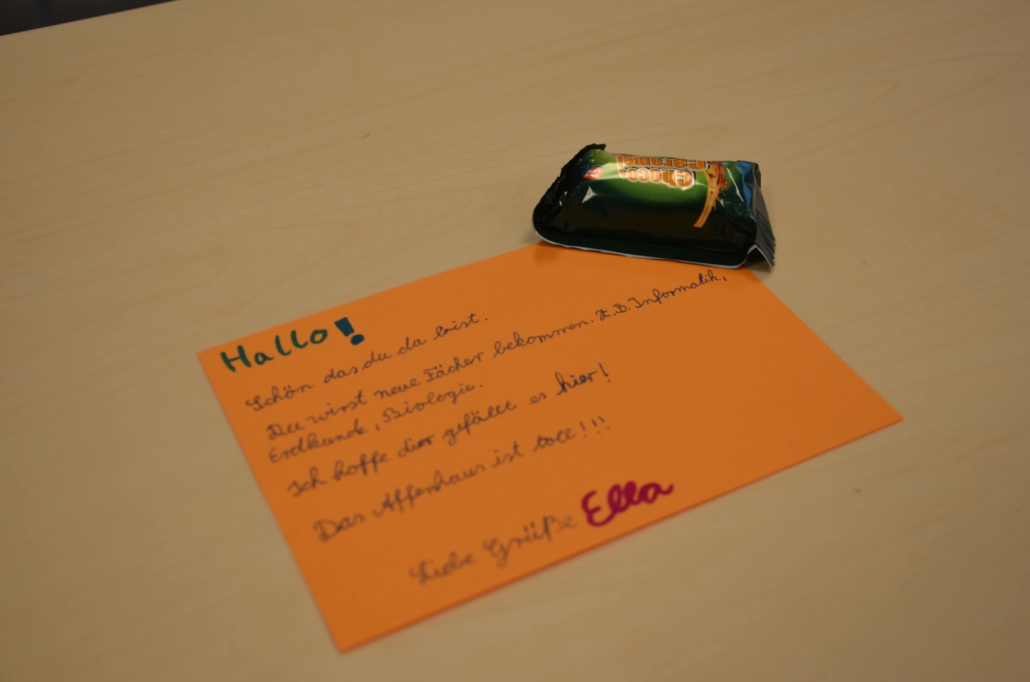 Choco
Caramel
Hallo!
Schön das du da bist.
Du wirst neue Fächer bekommen. Z.B. Informatik,
Erdkunde, Biologie.
Ich hoffe dir gefällt es hier!
Das Affenhaus ist toll!!!
Liebe Grüße Ella